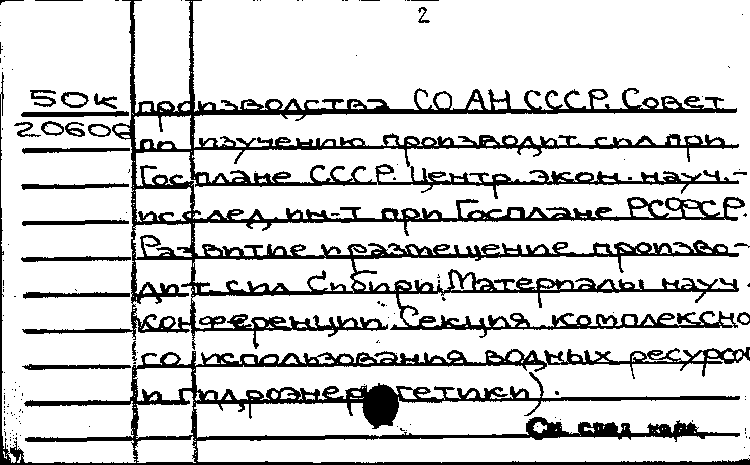 2
50К производства СО АН СССР. Совет
20606 по изучению производит. сил при
Госплане СССР. Центр. экон. науч.-
исслед. ин-т при Госплане РСФСР.
Развитие и размещение произво-
дит. сил Сибири. Материалы науч.
конференции. Секция комплексно
го использования водных ресурсов
и гидроэнергетики).
См. след. карт.